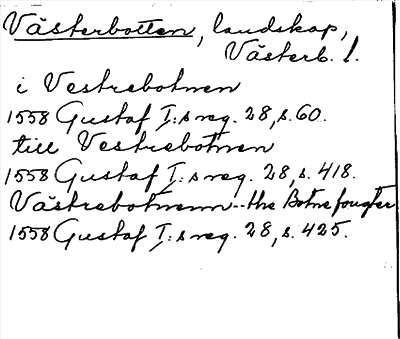 Västerbotten, landskap,
Västerb. l.
i Vestrebotnen
1558 Gustaf I:s reg. 28, s. 60.
till Vestrebotnen
1558 Gustaf I:s reg. 28, s. 418.
Västrebotnenn -- the Botne fougter
1558 Gustaf I:s reg. 28, s. 425.